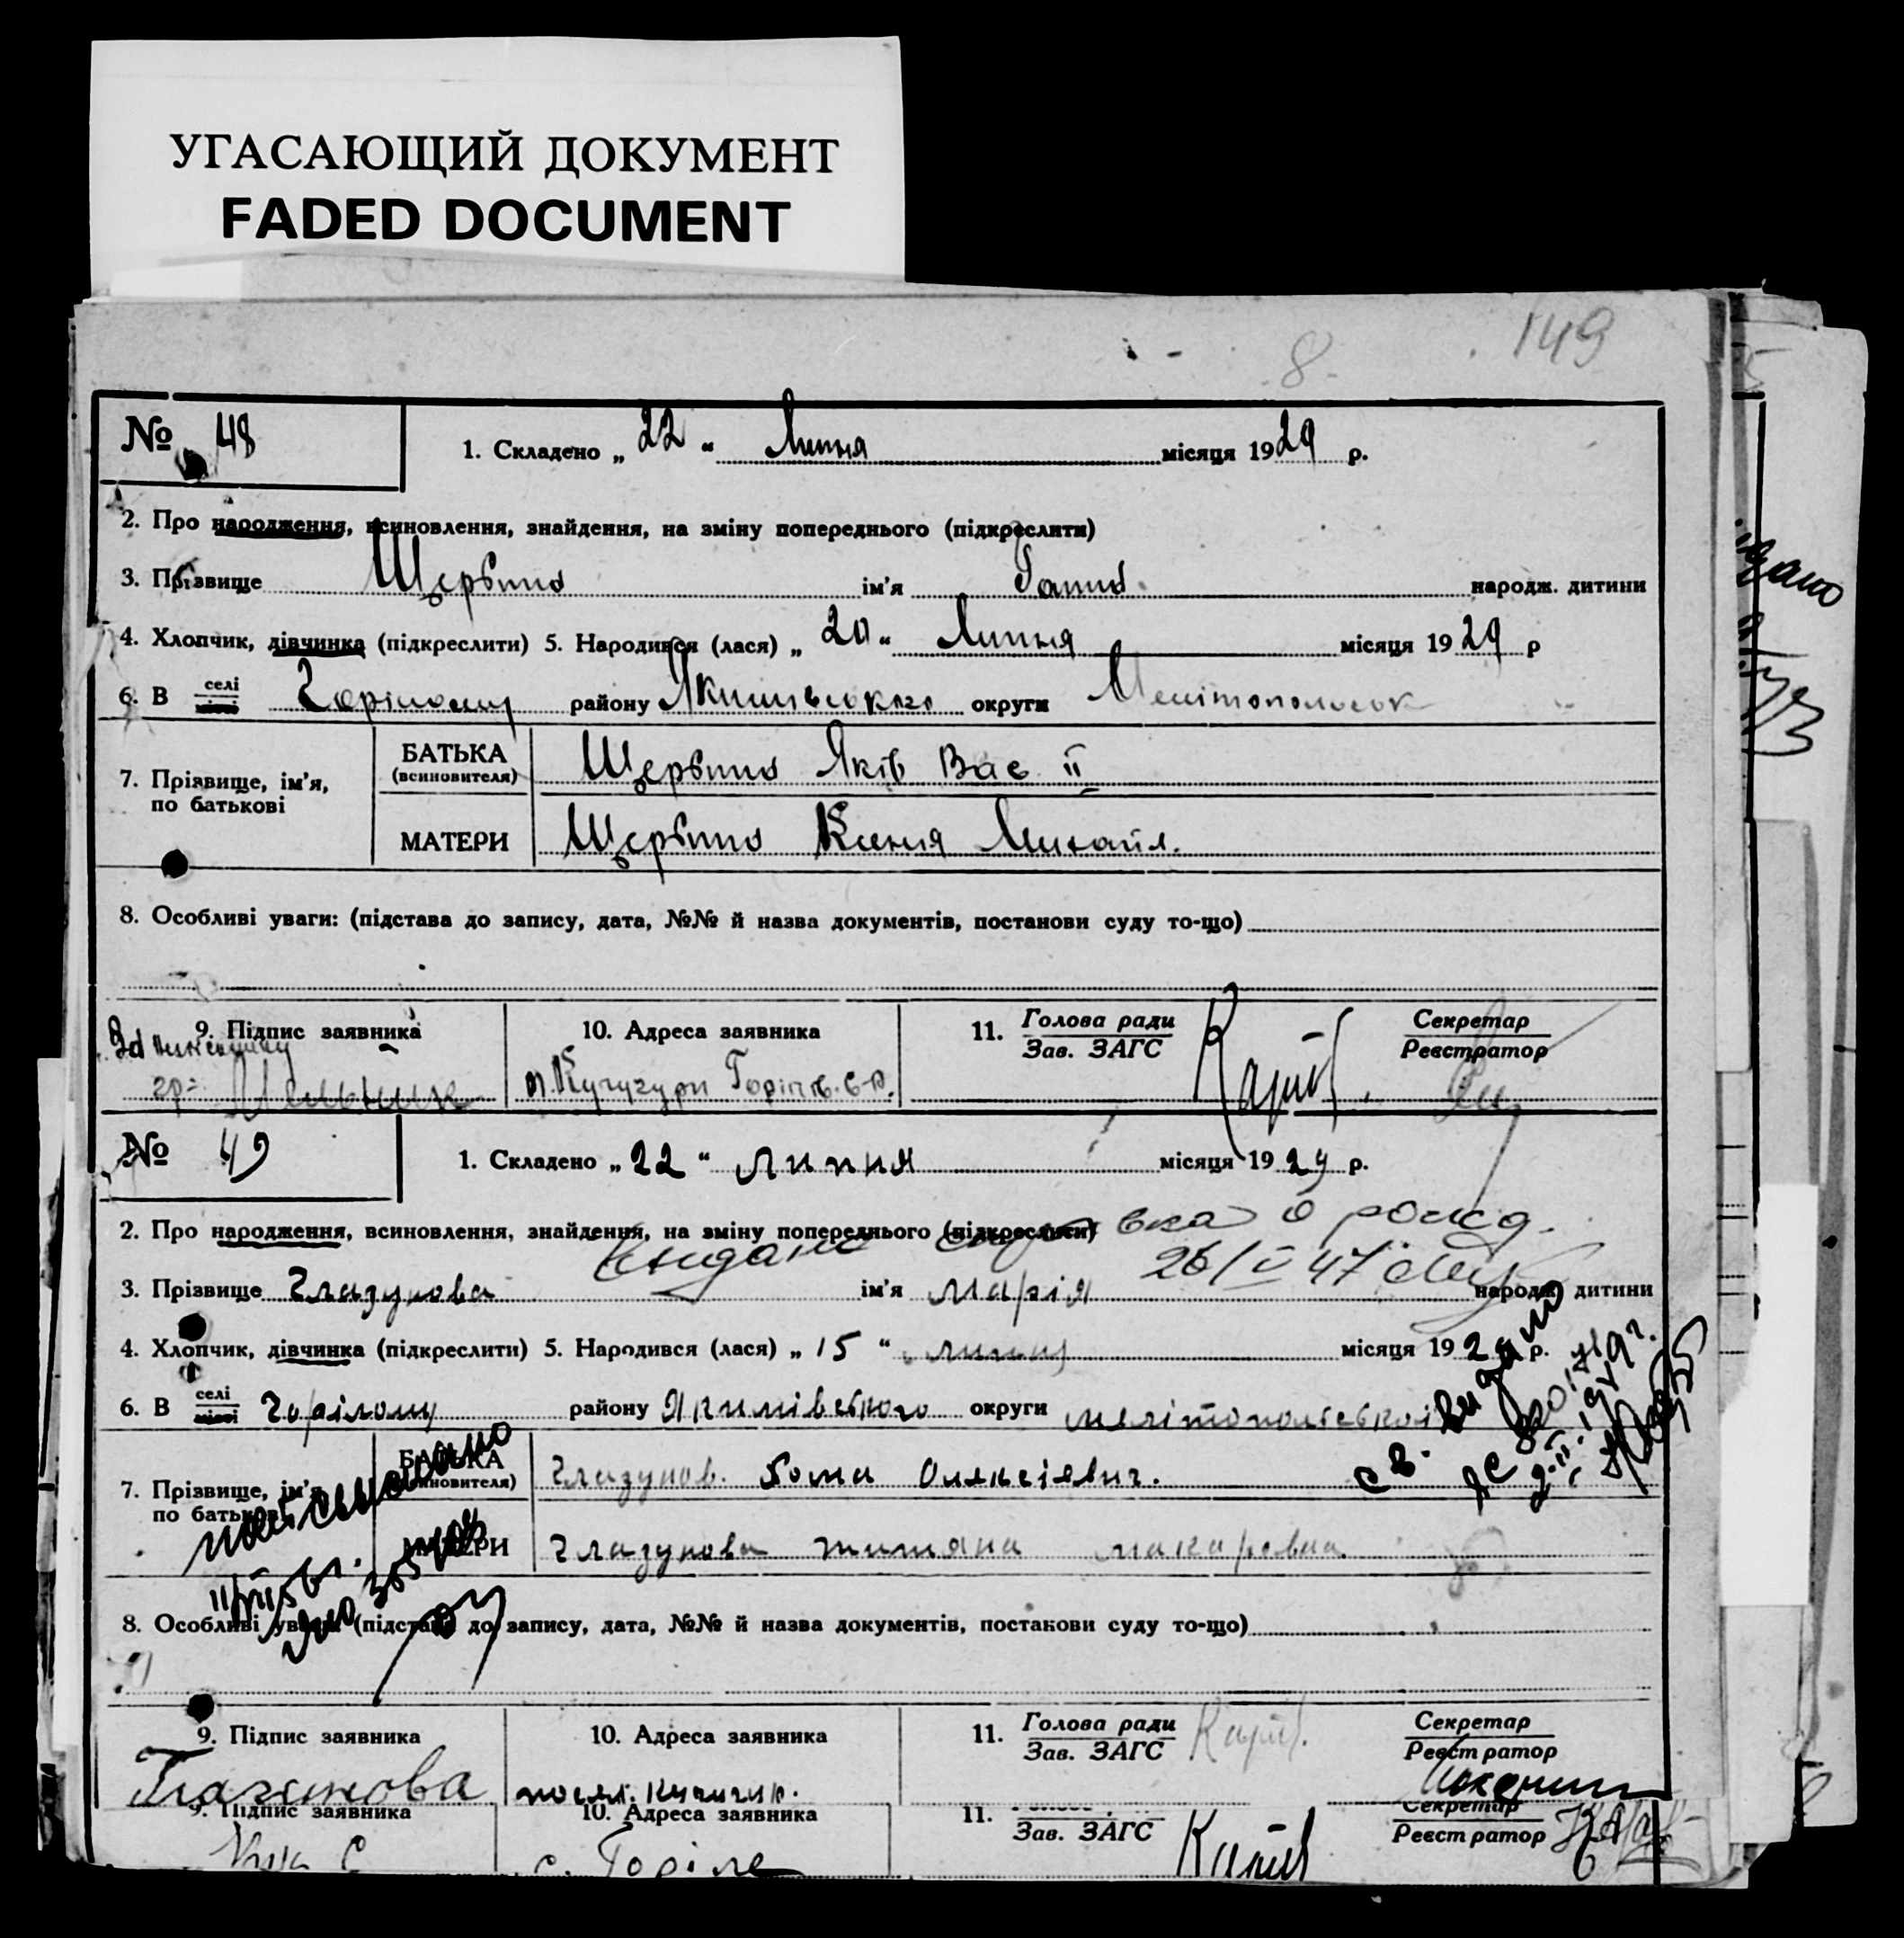 УГАСАЮЩИЙ ДОКУМЕНТ
FADED DOCUMENT
8. 149
№ 48 1. Складено „ 22 “ Липня місяця 1929 р.
2. Про народження, всиновлення, знайдення, на зміну попереднього (підкреслити)
3. Прізвище Щербина ім'я Ганна народж. дитини
4. Хлопчик, дівчинка (підкреслити) 5. Народився (лася) „ 20 “ Липня місяця 1929 р
6. В селі місті Горілому району Якимівського округи Мелітопольськ
7. Прізвище, ім'я, по батькові
БАТЬКА (всиновителя) Щербина Яків Вас II
МАТЕРИ Щербина Ксенія Михайл.
8. Особливі уваги: (підстава до запису, дата, №№ й назва документів, постанови суду то-що)
9. Підпис заявника 10. Адреса заявника 11. Голова ради Зав. ЗАГС Секретар Реєстратор
За
гр. Мельник п. Кучугури Горілів. с-р.
№ 49 1. Складено „ 22 “ липня місяця 1929 р.
2. Про народження, всиновлення, знайдення, на зміну попереднього (підкреслити)
Выдана справка о рожд.
26/V 47
3. Прізвище Глазунова ім'я Марія народж. дитини
4. Хлопчик, дівчинка (підкреслити) 5. Народився (лася) „ 15 “ липня місяця 1929 р.
6. В селі місті Горілому району Якимівського округи Мелітопольської
св. видано
7. Прізвище, ім'я, по батькові
БАТЬКА (всиновителя) Глазунов Хома Олексієвич.
МАТЕРИ Глазунова Титяна Макаровна
8. Особливі уваги: (підстава до запису, дата, №№ й назва документів, постанови суду то-що)
9. Підпис заявника 10. Адреса заявника 11. Голова ради Зав. ЗАГС Секретар Реєстратор
Глазунова посел. Кучугур.
9. Підпис заявника 10. Адреса заявника 11. Зав. ЗАГС Секретар Реєстратор
с. Горіле